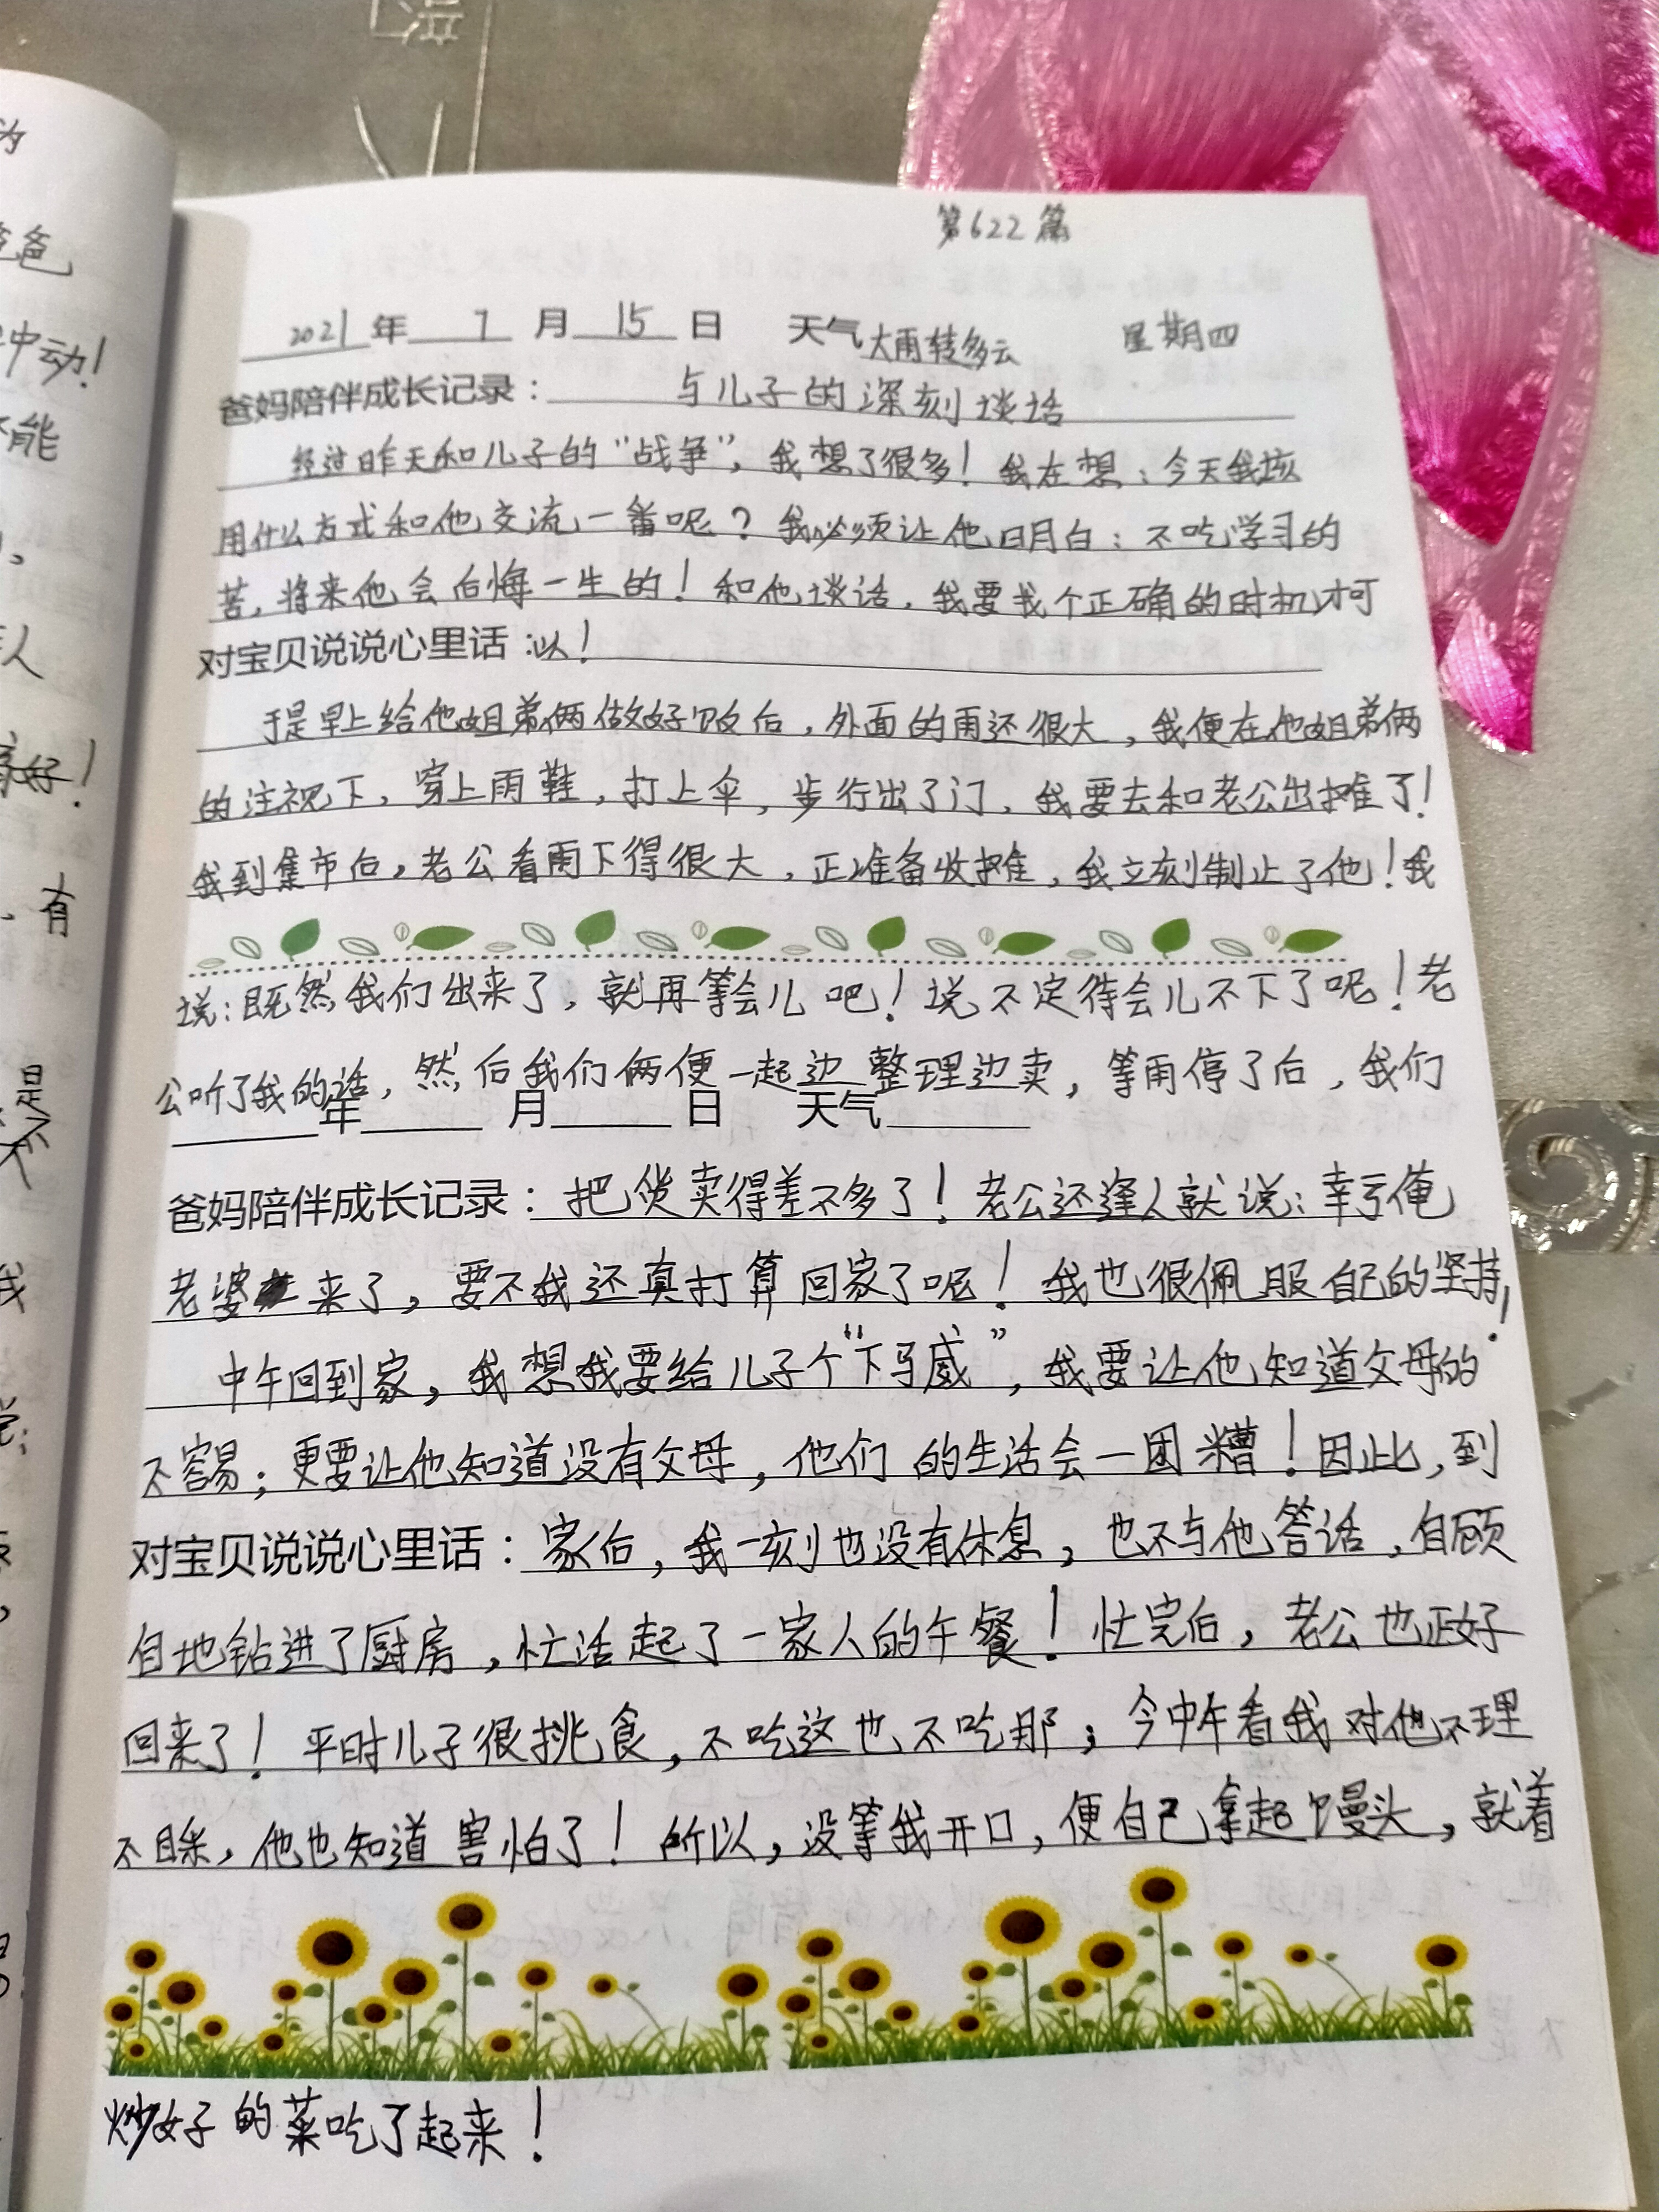 第622篇
2021年 7 月 15 日 天气大雨转多云 星期四
爸妈陪伴成长记录：与儿子的深刻谈话
经过昨天和儿子的“战争”，我想了很多！我在想：今天我该
用什么方式和他交流一番呢？我必须让他明白：不吃学习的
苦，将来他会后悔一生的！和他谈话，我要找个正确的时机才可
对宝贝说说心里话：以！
于是早上给他姐弟俩做好饭后，外面的雨还很大，我便在他姐弟俩
的注视下，穿上雨鞋，打上伞，步行出了门，我要去和老公出摊了！
我到集市后，老公看雨下得很大，正准备收摊，我立刻制止了他！我
说：既然我们出来了，就再等会儿吧！说不定待会儿不下了呢！老
公听了我的话，然后我们俩便一起边整理边卖，等雨停了后，我们
年 月 日 天气
爸妈陪伴成长记录：把货卖得差不多了！老公还逢人就说：幸亏俺
老婆来了，要不我还真打算回家了呢！我也很佩服自己的坚持！
中午回到家，我想我要给儿子个“下马威”，我要让他知道父母的
不容易；更要让他知道没有父母，他们的生活会一团糟！因此，到
对宝贝说说心里话：家后，我一刻也没有休息，也不与他答话，自顾
自地钻进了厨房，忙活起了一家人的午餐！忙完后，老公也正好
回来了！平时儿子很挑食，不吃这也不吃那；今中午看我对他不理
不睬，他也知道害怕了！所以，没等我开口，便自己拿起馒头，就着
炒好的菜吃了起来！
为
爸爸
中动！
不能
人
好！
有
是
不
我